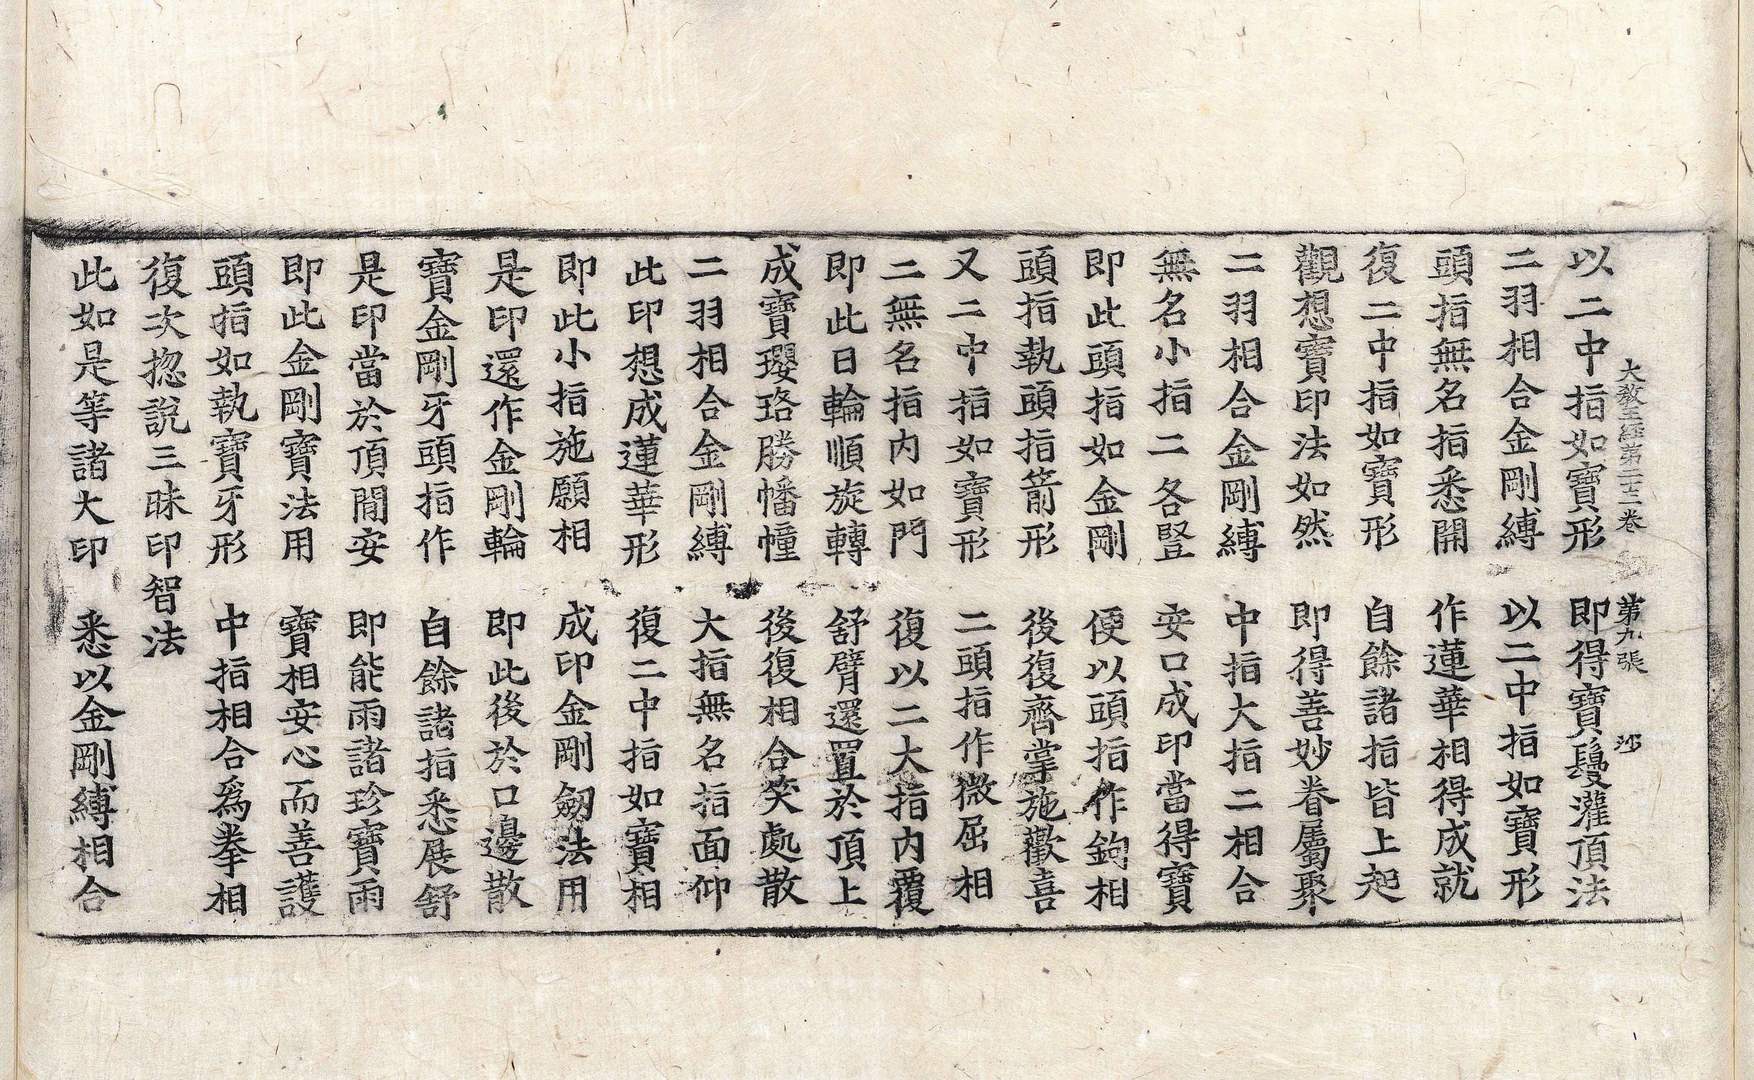 大教王經第二十二卷 第九張 沙
以二中指如寶形 即得寶鬘灌頂法
二羽相合金剛縛 以二中指如寶形
頭指無名指悉開 作蓮華相得成就
復二中指如寶形 自餘諸指皆上起
觀想寶印法如然 即得善妙眷屬聚
二羽相合金剛縛 中指大指二相合
無名小指二各豎 安口成印當得寶
即此頭指如金剛 便以頭指作鉤相
頭指執頭指箭形 後復齊掌施歡喜
又二中指如寶形 二頭指作微屈相
二無名指内如門 復以二大指内覆
即此日輪順旋轉 舒臂還置於頂上
成寶瓔珞勝幡幢 後復相合笑處散
二羽相合金剛縛 大指無名指面仰
此印想成蓮華形 復二中指如寶相
即此小指施願相 成印金剛劒法用
是印還作金剛輪 即此後於口邊散
寶金剛牙頭指作 自餘諸指悉展舒
是印當於頂間安 即能雨諸珍寶雨
即此金剛寶法用 寶相安心而善護
頭指如執寶牙形 中指相合爲拳相
復次揔說三昧印智法
此如是等諸大印 悉以金剛縛相合